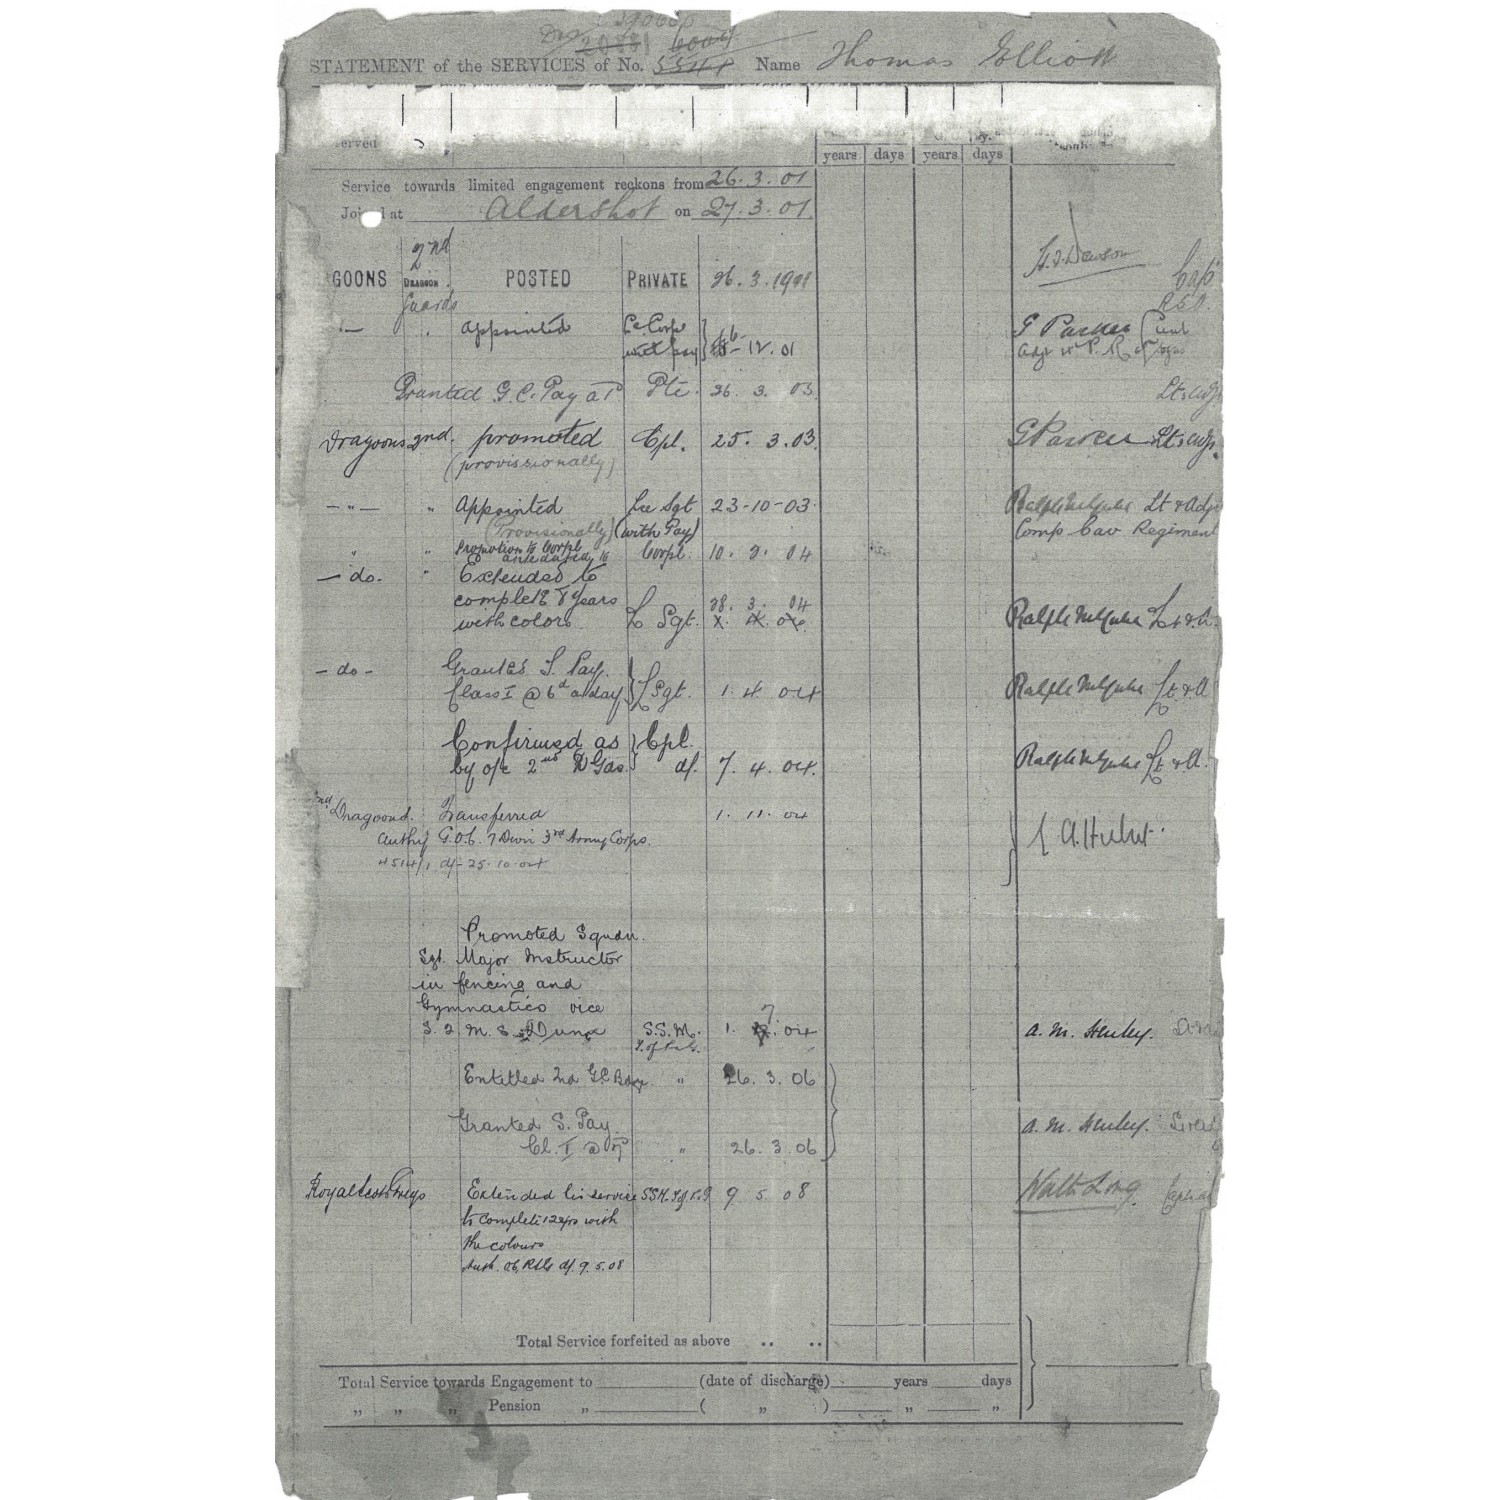 20881
STATEMENT of the SERVICES of No. Name Thomas Elliott
erved
years days years days
Service towards limited engagement reckons from 26. 3. 01
Joi d at Aldershot on 27. 3. 01
GOONS 2nd Dragoon Guards POSTED PRIVATE 26. 3. 1901 Dawson Cap
" appointed Le. Corpl with pay 12. 01 G Parker Lieut
Adjt
Granted G. C. Pay at Pte. 26. 3. 03. Lt & Adj
Dragoons 2nd. promoted Cpl. 25. 3. 03. G Parker Lt & Adj.
(provissionally)
— " — " Appointed Lce Sgt 23-10-03 Lt & Adj
(Provisionally) (with Pay) Comp Cav Regiment
" " Promotion to Corpl antedated to Corpl. 10. 2. 04
— do - " Extended to
complete 8 years 28. 3. 04
with colors L Sgt. X. X. 04 Ralph Lt & A.
- do - Granted S. Pay.
Class I @ 6d a day L Sgt. 1. 4. 04 Ralph Lt. & A
Confirmed as Cpl.
by o/c 2nd D Gds. d/. 7. 4. 04. Ralph Lt & A.
2nd Dragoons. Transferred 1. 11. 04
Authy G.O.C. 7 Divn 3rd Army Corps.
4514/1. d/- 25. 10. 04
Promoted Squdn.
Sgt. Major Instructor
in fencing and
Gymnastics vice
S. S. M. 1. 7. 04 A. M. Henley.
Entitled 2nd G.C. Badge " 26. 3. 06
Granted S. Pay. A. M. Henley.
Cl. I @ " 26. 3. 06
Royal Scots Greys Extended his service S.S.M. 9 5 08 Walter Long. Capt
to complete 12 yrs with
the colours
Auth. d/. 9. 5. 08
Total Service forfeited as above .. ..
Total Service towards Engagement to (date of discharge) years days
" " " Pension " ( " ) " "